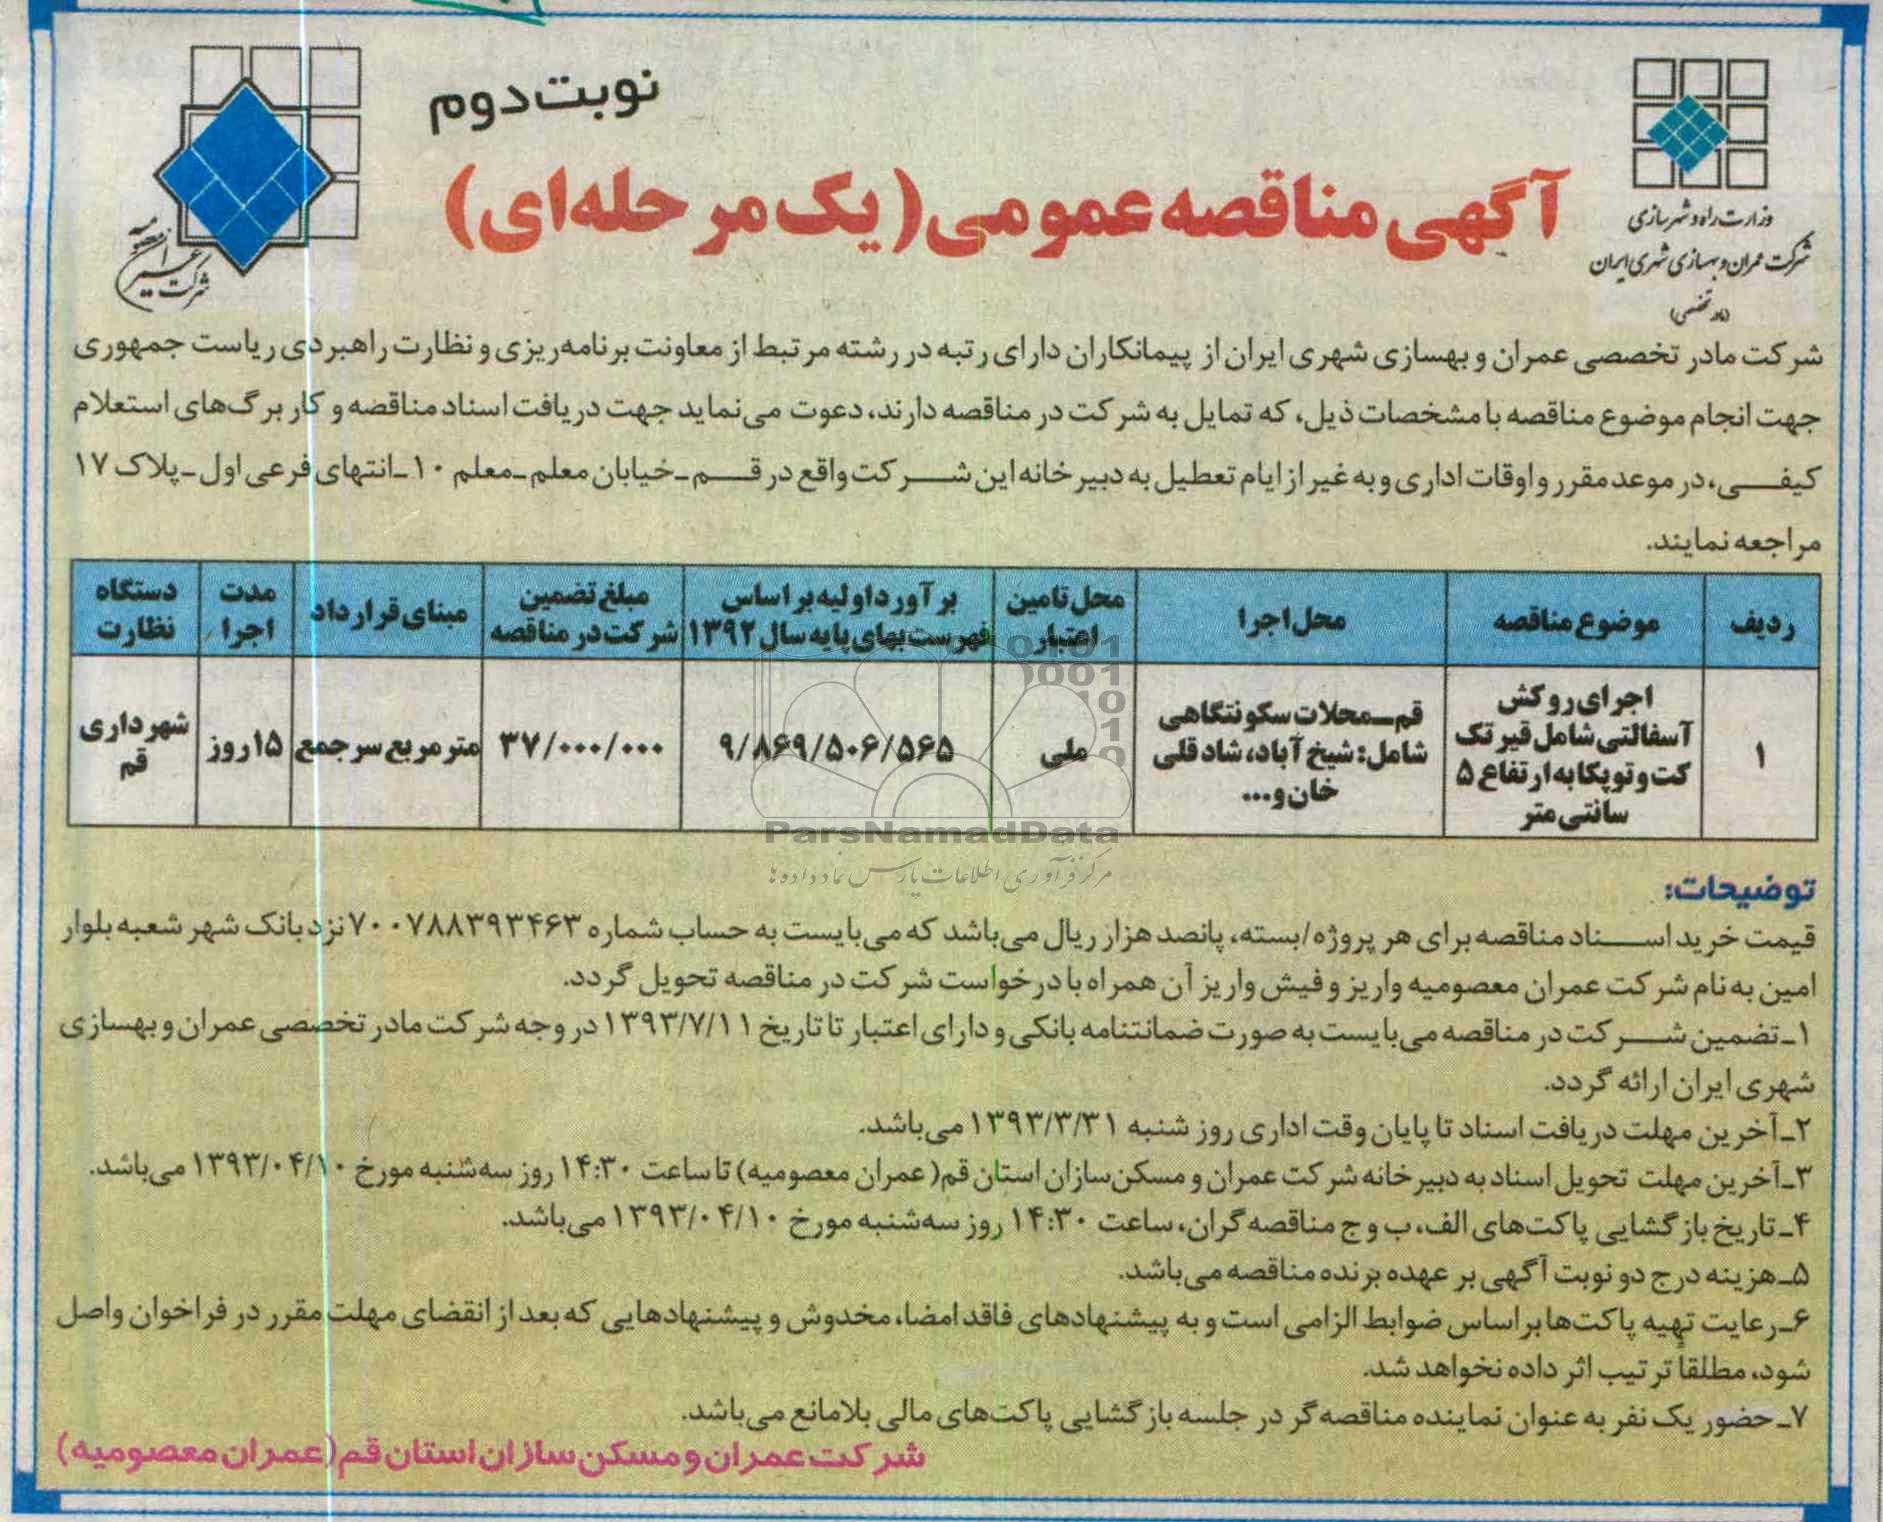 نوبت دوم
آگهی مناقصه عمومی (یک مرحله‌ای)
وزارت راه و شهرسازی
شرکت عمران و بهسازی شهری ایران
(مادر تخصصی)
شرکت عمران معصومیه
شرکت مادر تخصصی عمران و بهسازی شهری ایران از پیمانکاران دارای رتبه در رشته مرتبط از معاونت برنامه‌ریزی و نظارت راهبردی ریاست جمهوری
جهت انجام موضوع مناقصه با مشخصات ذیل، که تمایل به شرکت در مناقصه دارند، دعوت می‌نماید جهت دریافت اسناد مناقصه و کاربرگ‌های استعلام
کیفـی، در موعد مقرر و اوقات اداری و به غیر از ایام تعطیل به دبیرخانه این شـرکت واقع در قـم ـ خیابان معلم ـ معلم ۱۰ ـ انتهای فرعی اول ـ پلاک ۱۷
مراجعه نمایند.
ردیف
موضوع مناقصه
محل اجرا
محل تامین
اعتبار
برآورد اولیه بر اساس
فهرست بهای پایه سال ۱۳۹۲
مبلغ تضمین
شرکت در مناقصه
مبنای قرارداد
مدت
اجرا
دستگاه
نظارت
۱
اجرای روکش
آسفالتی شامل قیر تک
کت و توپکا به ارتفاع ۵
سانتی متر
قم ـ محلات سکونتگاهی
شامل: شیخ آباد، شادقلی
خان و...
ملی
۹/۸۶۹/۵۰۶/۵۶۵
۳۷/۰۰۰/۰۰۰
متر مربع سرجمع
۱۵ روز
شهرداری
قم
ParsNamadData
مرکز فرآوری اطلاعات پارس نماد داده ها
توضیحات:
قیمت خرید اسـناد مناقصه برای هر پروژه/بسته، پانصد هزار ریال می‌باشد که می‌بایست به حساب شماره ۷۰۰۷۸۸۳۹۳۴۶۳ نزد بانک شهر شعبه بلوار
امین به نام شرکت عمران معصومیه واریز و فیش واریز آن همراه با درخواست شرکت در مناقصه تحویل گردد.
۱ـ تضمین شـرکت در مناقصه می‌بایست به صورت ضمانتنامه بانکی و دارای اعتبار تا تاریخ ۱۳۹۳/۷/۱۱ در وجه شرکت مادر تخصصی عمران و بهسازی
شهری ایران ارائه گردد.
۲ـ آخرین مهلت دریافت اسناد تا پایان وقت اداری روز شنبه ۱۳۹۳/۳/۳۱ می‌باشد.
۳ـ آخرین مهلت تحویل اسناد به دبیرخانه شرکت عمران و مسکن‌سازان استان قم (عمران معصومیه) تا ساعت ۱۴:۳۰ روز سه‌شنبه مورخ ۱۳۹۳/۰۴/۱۰ می‌باشد.
۴ـ تاریخ بازگشایی پاکت‌های الف، ب و ج مناقصه گران، ساعت ۱۴:۳۰ روز سه‌شنبه مورخ ۱۳۹۳/۰۴/۱۰ می‌باشد.
۵ـ هزینه درج دو نوبت آگهی بر عهده برنده مناقصه می‌باشد.
۶ـ رعایت تهیه پاکت‌ها بر اساس ضوابط الزامی است و به پیشنهادهای فاقد امضا، مخدوش و پیشنهادهایی که بعد از انقضای مهلت مقرر در فراخوان واصل
شود، مطلقاً ترتیب اثر داده نخواهد شد.
۷ـ حضور یک نفر به عنوان نماینده مناقصه‌گر در جلسه بازگشایی پاکت‌های مالی بلامانع می‌باشد.
شرکت عمران و مسکن سازان استان قم (عمران معصومیه)